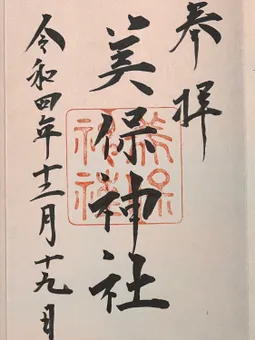 奉拝
美保神社
令和四年十二月十九日